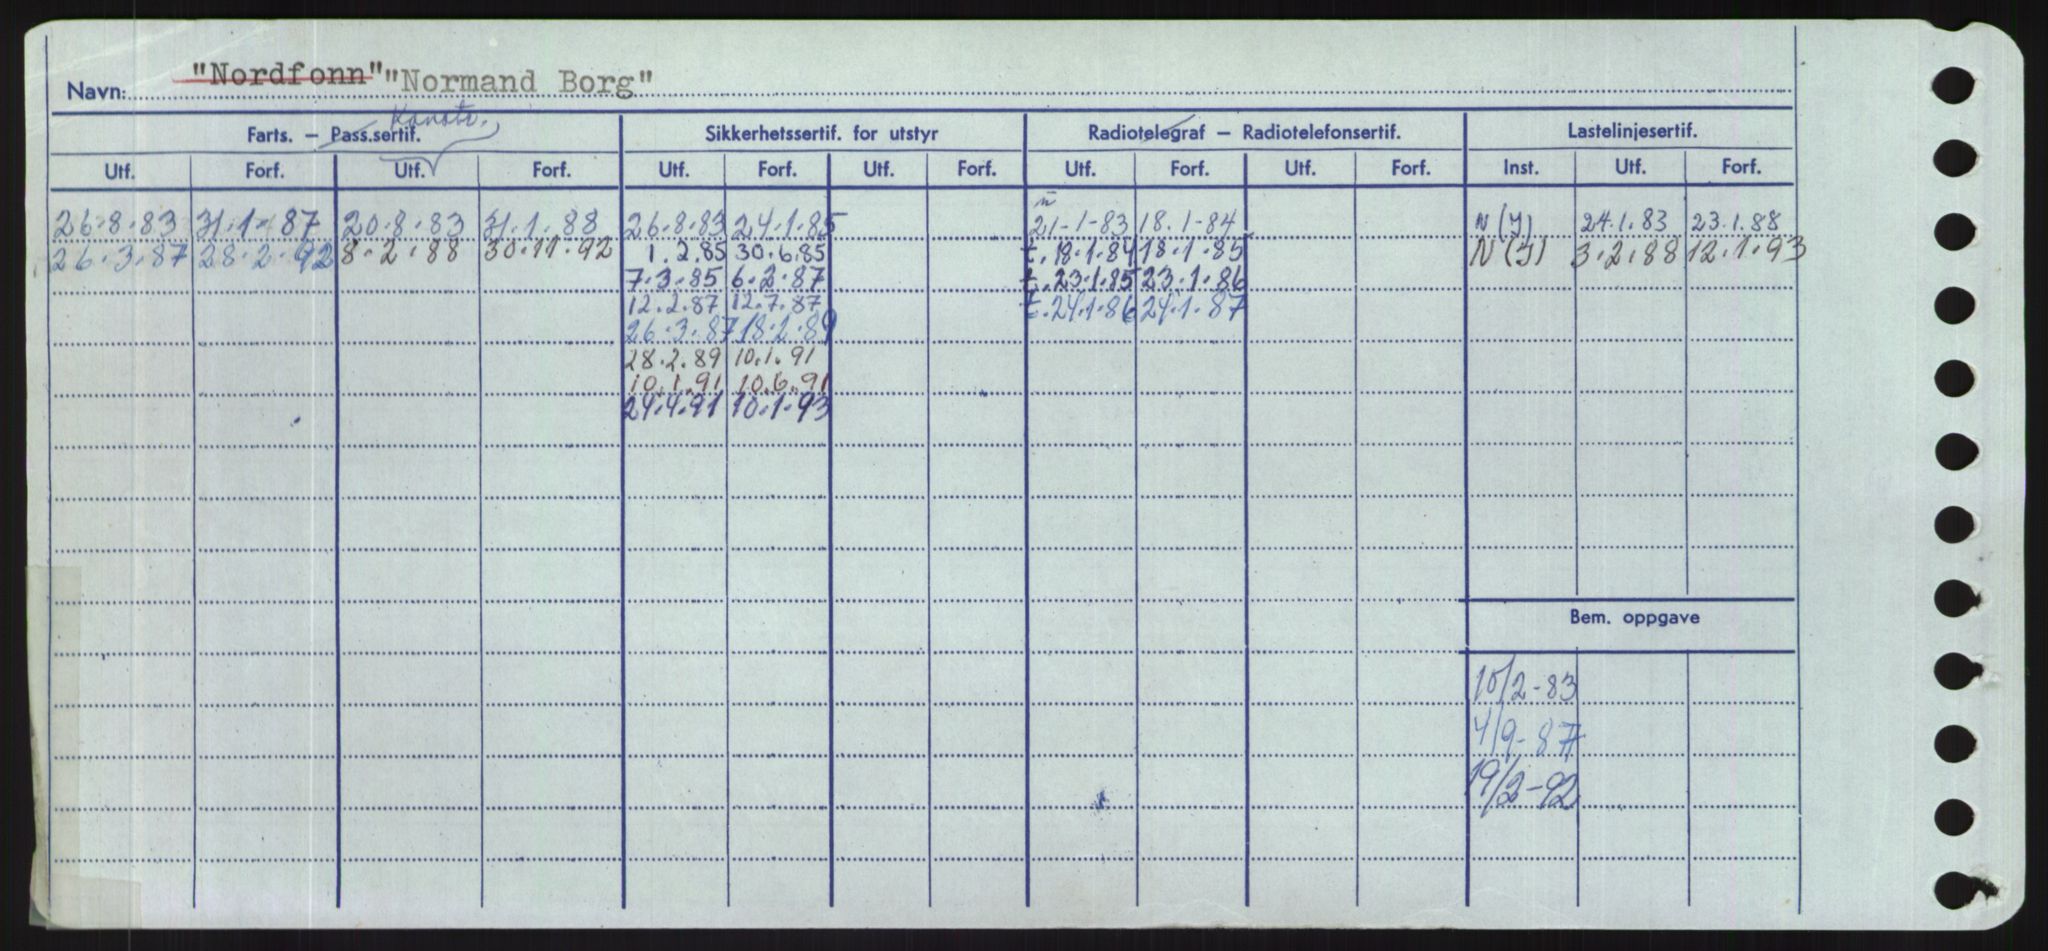 Navn: "Nordfonn" "Normand Borg"
Konstr.
Farts. – Pass.sertif. Sikkerhetssertif. for utstyr Radiotelegraf – Radiotelefonsertif. Lastelinjesertif.
Utf. Forf. Utf. Forf. Utf. Forf. Utf. Forf. Utf. Forf. Utf. Forf. Inst. Utf. Forf.
26.8.83 31.1.87 20.8.83 31.1.88 26.8.83 24.1.85 21-1-83 18.1-84 N (I) 24.1.83 23.1.88
26.3.87 28.2.92 8.2.88 30.11.92 1.2.85 30.6.85 t.18.1.84 18.1.85 N (I) 3.2.88 12.1.93
7.3.85 6.2.87 t.23.1.85 23.1.86
12.2.87 12.7.87 t.24.1.86 24.1.87
26.3.87 18.2.89
28.2.89 10.1.91
10.1.91 10.6.91
24.4.91 10.1.93
Bem. oppgave
10/2-83
4/9-87
19/2-92